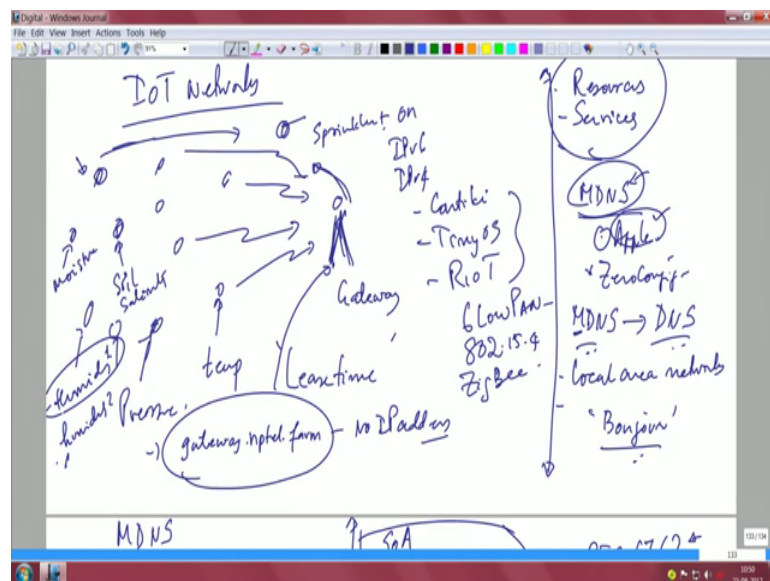 Digital - Windows Journal
File Edit View Insert Actions Tools Help
91%
IOT Networks
Sprinkler on
IPv6
IPv4
- Contiki
- Tiny OS
- RIOT
6LowPAN
802.15.4
ZigBee
Moisture
Soil
temp
Pressure
Gateway
Lease time
gateway.nptel.farm - No IP address
Resources
- Services
MDNS
Apple
ZeroConfig
MDNS → DNS
- Local area networks
"Bonjour"
MDNS
SOA
133/134
133
10:50